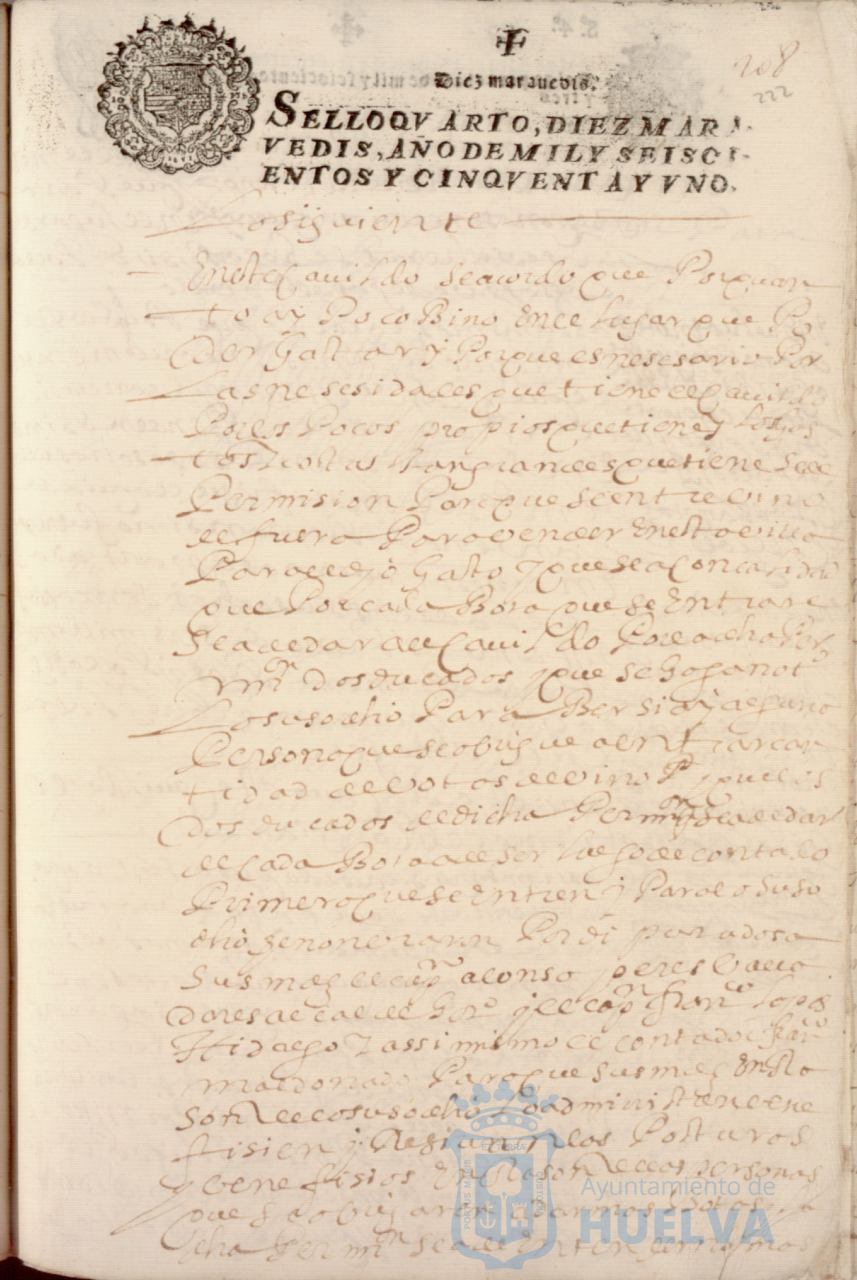 208
222
Diez maravedis.
SELLO QVARTO, DIEZ MARA
VEDIS, AÑO DE MIL Y SEISCI
ENTOS Y CINQVENTA Y VNO.
Lo siguiente
En este Cauildo se acordo que Por quan
to ay Poco Bino En el lugar que Po
der Gastar y Porque es nesesario Por
Las nesesidades que tiene el Cauildo
Por los Pocos propios que tiene y los
costas tan grandes que tiene se de
Permision Para que se entre vino
de fuera Para vender En esta villa
Para el dho Gasto y que sea con calidad
que Por cada Bota que se Entrare
Se a de dar al Cauildo Por la dha Per
mon Dos ducados y que se haga not
Lo susodho Para Ber si ay alguna
Persona que se obligue a entrar can
tidad de botas de vino y que los
Dos ducados de dicha Permon se a de dar
de Cada Bota a de ser luego de contado
Primero que se Entren y Para lo suso
dho se nonbraron Por diputados a
Sus mds el capn alonso peres
y el capn franco lopes
Hidalgo y assimismo el contador
maldonado Para que sus mds En Ra
son de lo susodho lo administren bene
fisien y Resiuan las Posturas
y benefisios En Rason de las personas
que se obligaren a dar mas botas
dha Permon se a de Entender
Ayuntamiento de
HUELVA